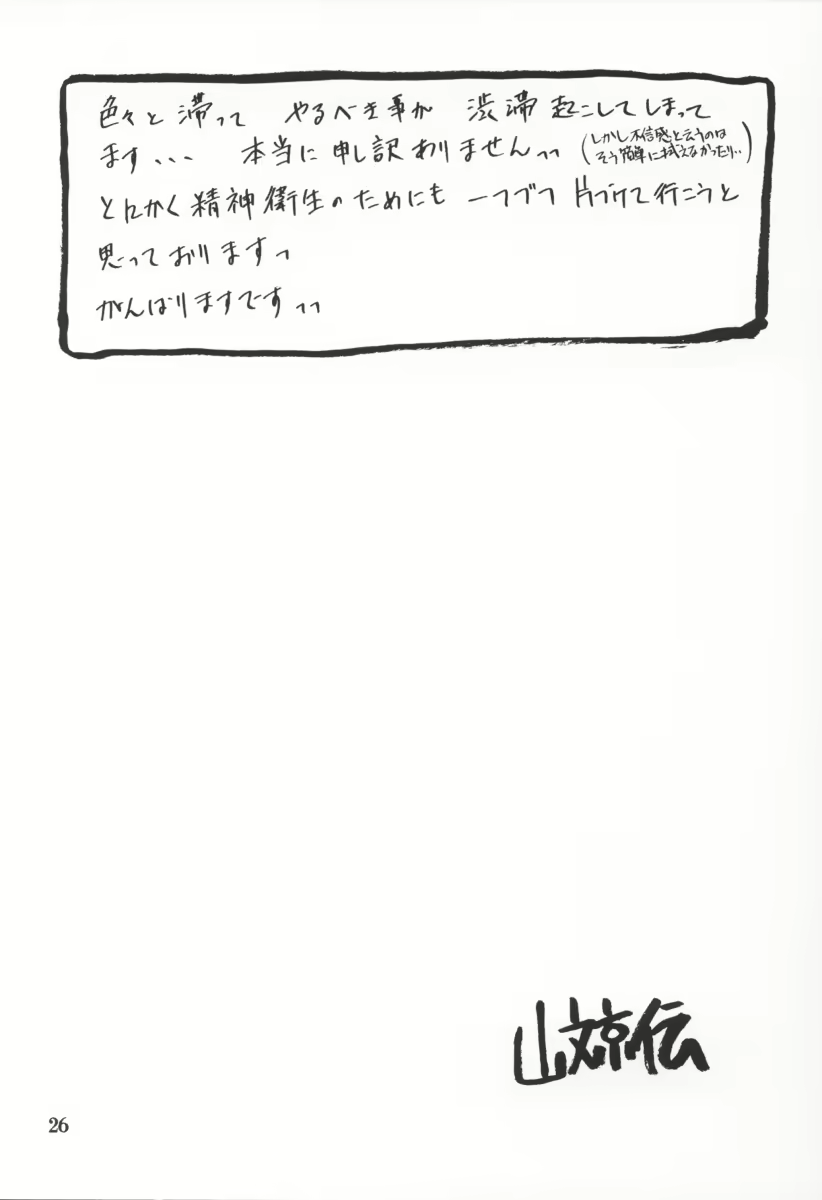 色々と滞って やるべき事が 渋滞起こしてしまって
ます、、、 本当に申し訳ありませんっっ
(しかし不信感と云うのは
そう簡単に拭えなかったり..)
とにかく精神衛生のためにも 一つづつ 片づけて行こうと
思っておりますっ
がんばりますですっっ
山文京伝
26